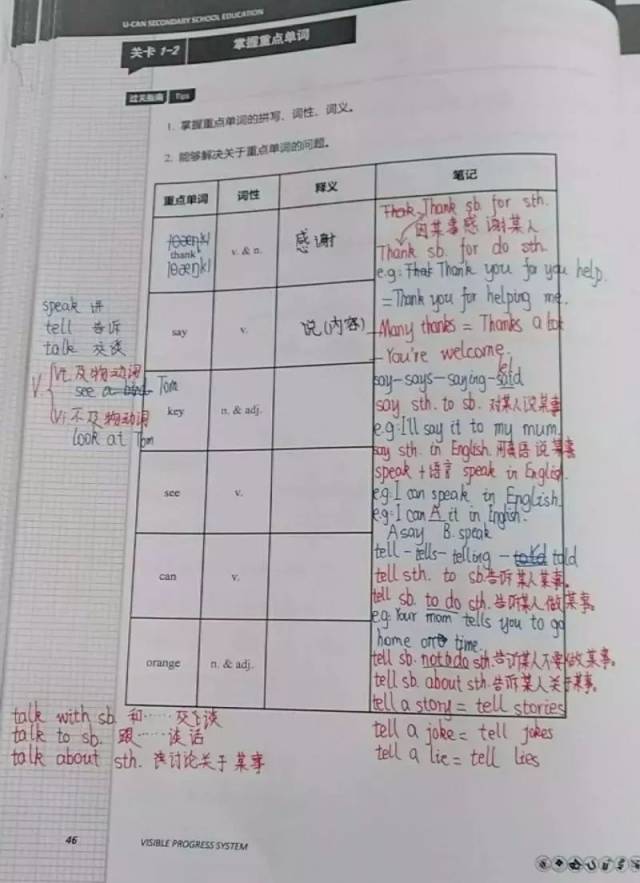 U-CAN SECONDARY SCHOOL EDUCATION
关卡 1-2 掌握重点单词
过关指南 Tips
1. 掌握重点单词的拼写、词性、词义。
2. 能够解决关于重点单词的问题。
重点单词 词性 释义 笔记
thank v. & n. 感谢
/θæŋk/
say v. 说(内容)
key n. & adj.
see v.
can v.
orange n. & adj.
Thank sb. for sth.
因某事感谢某人
Thank sb. for do sth.
e.g: Thank you for you help.
=Thank you for helping me.
Many thanks = Thanks a lot
-You're welcome.
say-says-saying-said
say sth. to sb. 对某人说某事
e.g: I'll say it to my mum.
say sth. in English. 用英语说某事
speak +语言 speak in English.
e.g: I can speak in English.
e.g: I can A it in English.
A say B. speak
tell-tells-telling-told
tell sth. to sb.告诉某人某事.
tell sb. to do sth.告诉某人做某事.
e.g: Your mom tells you to go
home on time.
tell sb. not to do sth.告诉某人不要做某事.
tell sb. about sth.告诉某人关于某事.
tell a story = tell stories
tell a joke = tell jokes
tell a lie = tell lies
speak 讲
tell 告诉
talk 交谈
V. Vt 及物动词
see Tom
Vi 不及物动词
look at Tom
talk with sb 和……交谈
talk to sb. 跟……谈话
talk about sth. 谈讨论关于某事
46
VISIBLE PROGRESS SYSTEM